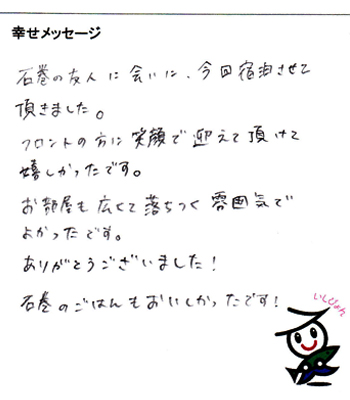 幸せメッセージ
石巻の友人に会いに、今回宿泊させて
頂きました。
フロントの方に笑顔で迎えて頂けて
嬉しかったです。
お部屋も広くて落ちつく雰囲気で
よかったです。
ありがとうございました！
石巻のごはんもおいしかったです！
いしぴょん